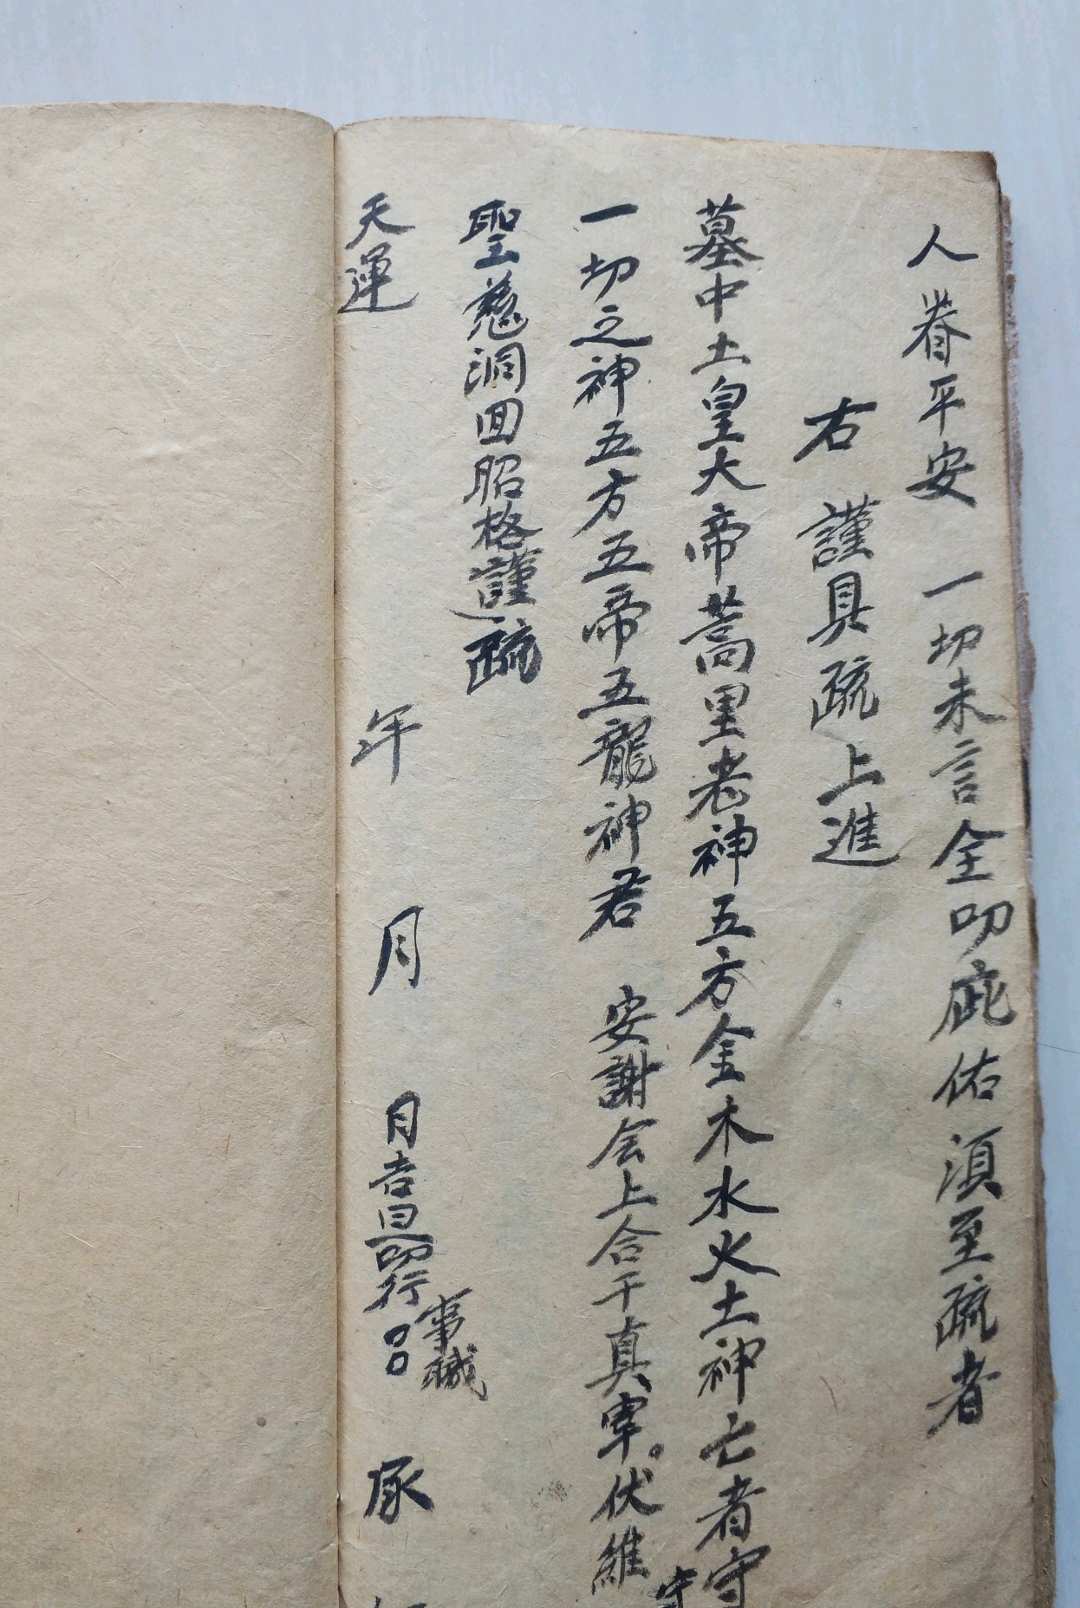 人眷平安　一切未言全叨庇佑須至疏者
右　謹具疏上進
墓中土皇大帝蒿里老神五方金木水火土神亡者守
守
一切之神五方五帝五龍神君　安謝会上合干真宰。伏維
聖慈洞回昭格謹疏
天運　年　月　日吉旦叩行　承
事職